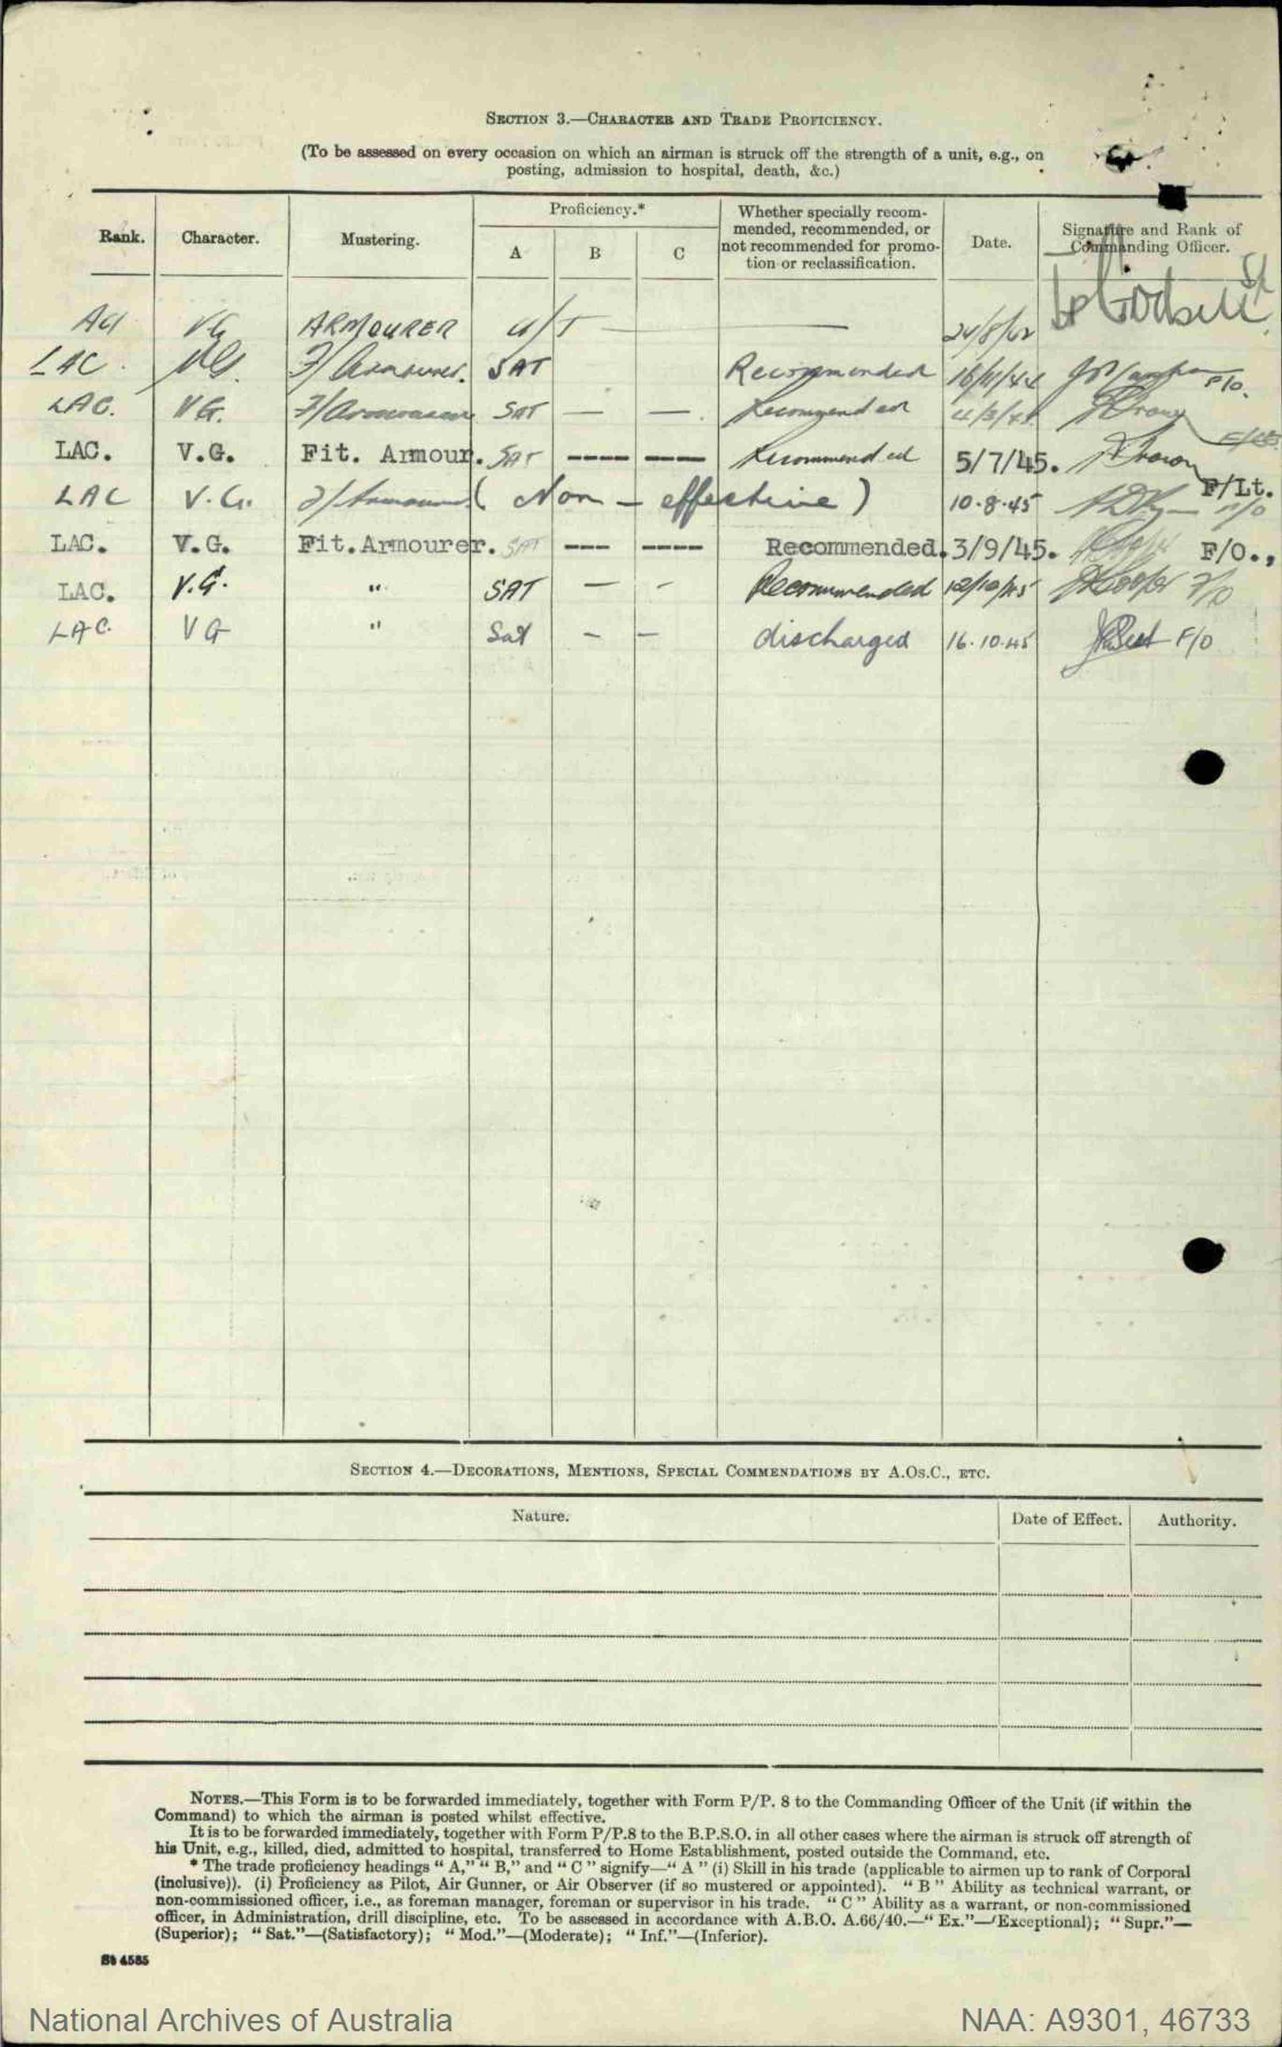 SECTION 3.—CHARACTER AND TRADE PROFICIENCY.
(To be assessed on every occasion on which an airman is struck off the strength of a unit, e.g., on
posting, admission to hospital, death, &c.)
Rank. Character. Mustering. Proficiency.* A B C Whether specially recom-
mended, recommended, or
not recommended for promo-
tion or reclassification. Date. Signature and Rank of
Commanding Officer.
VG ARMOURER U/T — — 24/8/42
LAC. VG. F/Armourer. SAT Recommended 16/11/44 F/O.
LAC. VG. F/Armourer SAT — — Recommended
LAC. V.G. Fit. Armour. SAT ---- ---- Recommended 5/7/45. F/Lt.
LAC V.G. F/Armourer (Non-effective) 10.8.45 F/O
LAC. V.G. Fit.Armourer. SAT --- ---- Recommended. 3/9/45. F/O.,
LAC. V.G. " SAT — - Recommended 12/10/45 F/O
LAC. VG " Sat — — discharged 16.10.45 F/O
SECTION 4.—DECORATIONS, MENTIONS, SPECIAL COMMENDATIONS BY A.Os.C., ETC.
Nature. Date of Effect. Authority.
NOTES.—This Form is to be forwarded immediately, together with Form P/P. 8 to the Commanding Officer of the Unit (if within the
Command) to which the airman is posted whilst effective.
It is to be forwarded immediately, together with Form P/P.8 to the B.P.S.O. in all other cases where the airman is struck off strength of
his Unit, e.g., killed, died, admitted to hospital, transferred to Home Establishment, posted outside the Command, etc.
* The trade proficiency headings “ A,” “ B,” and “ C ” signify—“ A ” (i) Skill in his trade (applicable to airmen up to rank of Corporal
(inclusive)). (i) Proficiency as Pilot, Air Gunner, or Air Observer (if so mustered or appointed). “ B ” Ability as technical warrant, or
non-commissioned officer, i.e., as foreman manager, foreman or supervisor in his trade. “ C ” Ability as a warrant, or non-commissioned
officer, in Administration, drill discipline, etc. To be assessed in accordance with A.B.O. A.66/40.—“ Ex.”—(Exceptional); “ Supr.”—
(Superior); “ Sat.”—(Satisfactory); “ Mod.”—(Moderate); “ Inf.”—(Inferior).
St 4585
National Archives of Australia NAA: A9301, 46733